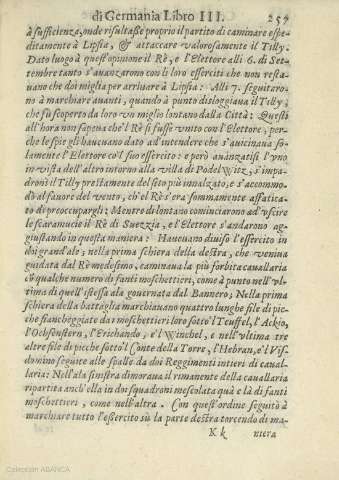 di Germania Libro III. 257
à sufficienza, onde risultasse proprio il partito di caminare espe-
ditamente à Lipsia, & attaccare valorosamente il Tilly.
Dato luogo à quest'opinione il Rè, e l'Elettore alli 6. di Set-
tembre tanto s'auanzorno con li loro esserciti che non resta-
uano che doi miglia per arriuare à Lipsia: Alli 7. seguitaro-
no à marchiare auanti, quando à punto disloggiaua il Tilly;
che fù scoperto da loro vn miglio lontano dalla Città: Questi
all'hora non sapeua che'l Rè si fusse vnito con l'Elettore, per-
che le spie gli haueuano dato ad intendere che s'auicinaua so-
lamente l'Elettore co'l suo essercito: e però auanzatisi l'vno
in vista dell'altro intorno alla villa di Podelwitz, s'impa-
dronì il Tilly prestamente del sito più innalzato, e s'accommo-
dò al fauore del vento, ch'el Rè s'era sommamente affatica-
to di preoccupargli: Mentre di lontano cominciarono ad vscire
le scaramucie il Rè di Suezzia, e l'Elettore s'andarono ag-
giustando in questa maniera: Haueuano diuiso l'essercito in
doi grand'ale; nella prima schiera della destra, che veniua
guidata dal Rè medesimo, caminaua la più forbita cauallaria
cō qualche numero di fanti moschettieri, come à punto nell'vl-
tima di quell'istessa ala gouernata dal Bannero; Nella prima
schiera della battaglia marchiauano quattro lunghe file di pic-
che fiancheggiate da moschettieri loro sotto'l Teuffel, l'Ackio,
l'Ochsenstern, l'Erichando, e'l Winchel, e nell'vltima tre
altre file di picche sotto'l Conte della Torre, l'Hebran, e'l Vis-
domino seguite alle spalle da doi Reggimenti intieri di caual-
laria: Nell'ala sinistra dimoraua il rimanente della cauallaria
ripartita anch'ella in doi squadroni mescolata quà e là di fanti
moschettieri, come nell'altra. Con quest'ordine seguitò à
marchiare tutto l'essercito sù la parte destra torcendo di ma-
K k niera
Colección ABANCA